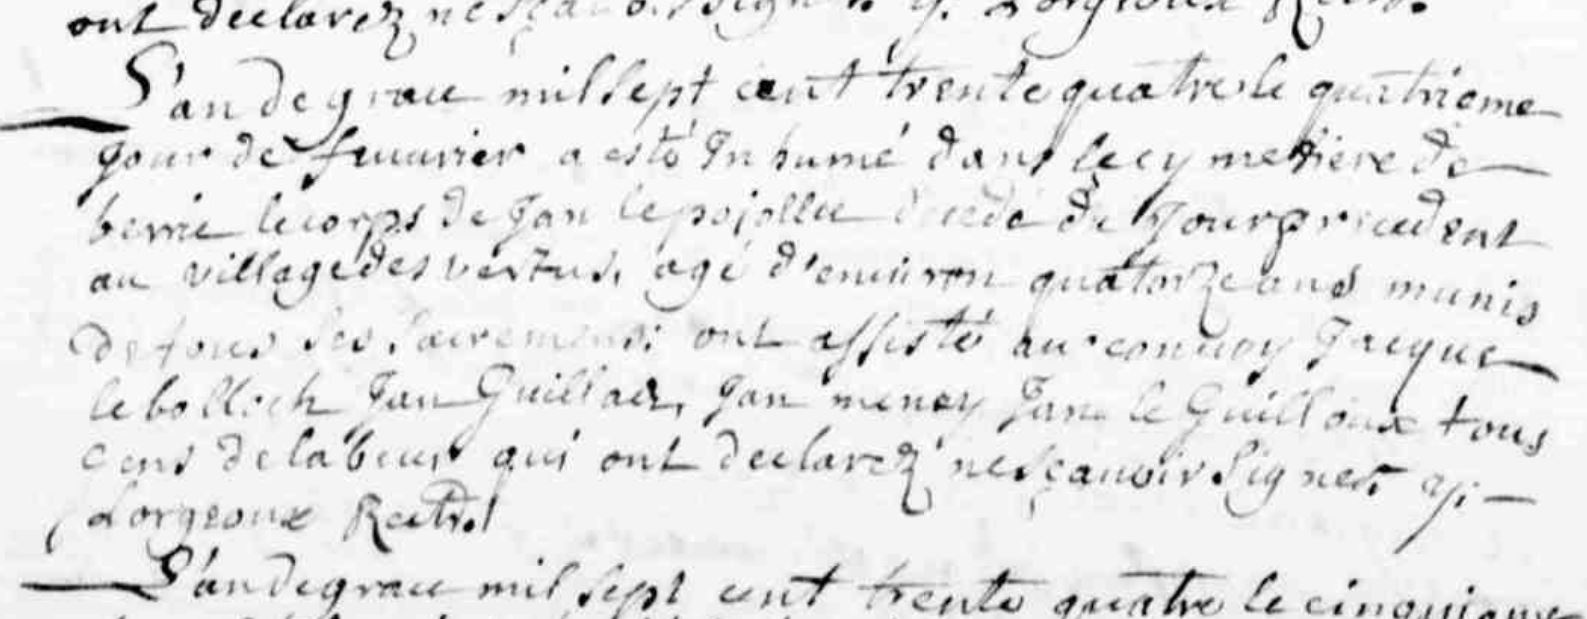 ont declarez ne sçavoir signer. y. Lorgeoux Rectr.
L'an de grace mil sept cent trente quatre le quatrieme
jour de feuvrier a esté Inhumé dans le cymetiere de
berric le corps de Jan le pojollec decedé du Jour precedent
au village des vertus, agé d'environ quatorze ans munis
de tous ses sacremens; ont assisté au convoy Jacque
le bolloch Jan Guillas, Jan meney Jan le Guilloux tous
gens de labeur qui ont declarez ne sçavoir signer y. 
Lorgeoux Rectr.
L'an de grace mil sept cent trente quatre le cinquieme